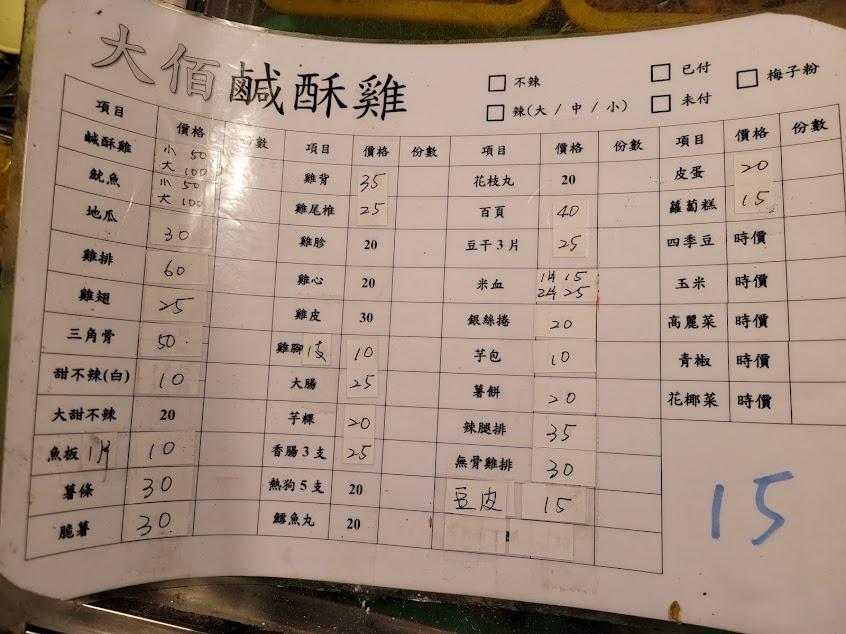 大佰鹹酥雞
不辣 已付 梅子粉
辣(大/中/小) 未付
項目 價格 份數
鹹酥雞 小 50 大 100
魷魚 小 50 大 100
地瓜 30
雞排 60
雞翅 25
三角骨 50
甜不辣(白) 10
大甜不辣 20
魚板1片 10
薯條 30
脆薯 30
項目 價格 份數
雞背 35
雞尾椎 25
雞胗 20
雞心 20
雞皮 30
雞腳1支 10
大腸 25
芋粿 20
香腸3支 25
熱狗5支 20
鱈魚丸 20
項目 價格 份數
花枝丸 20
百頁 40
豆干3片 25
米血 1片 15 2片 25
銀絲捲 20
芋包 10
薯餅 20
辣腿排 35
無骨雞排 30
豆皮 15
項目 價格 份數
皮蛋 20
蘿蔔糕 15
四季豆 時價
玉米 時價
高麗菜 時價
青椒 時價
花椰菜 時價
15